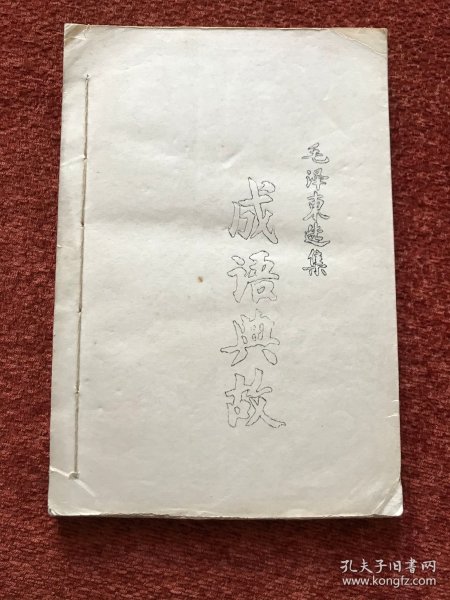 毛泽东选集
成语典故
孔夫子旧书网
www.kongfz.com